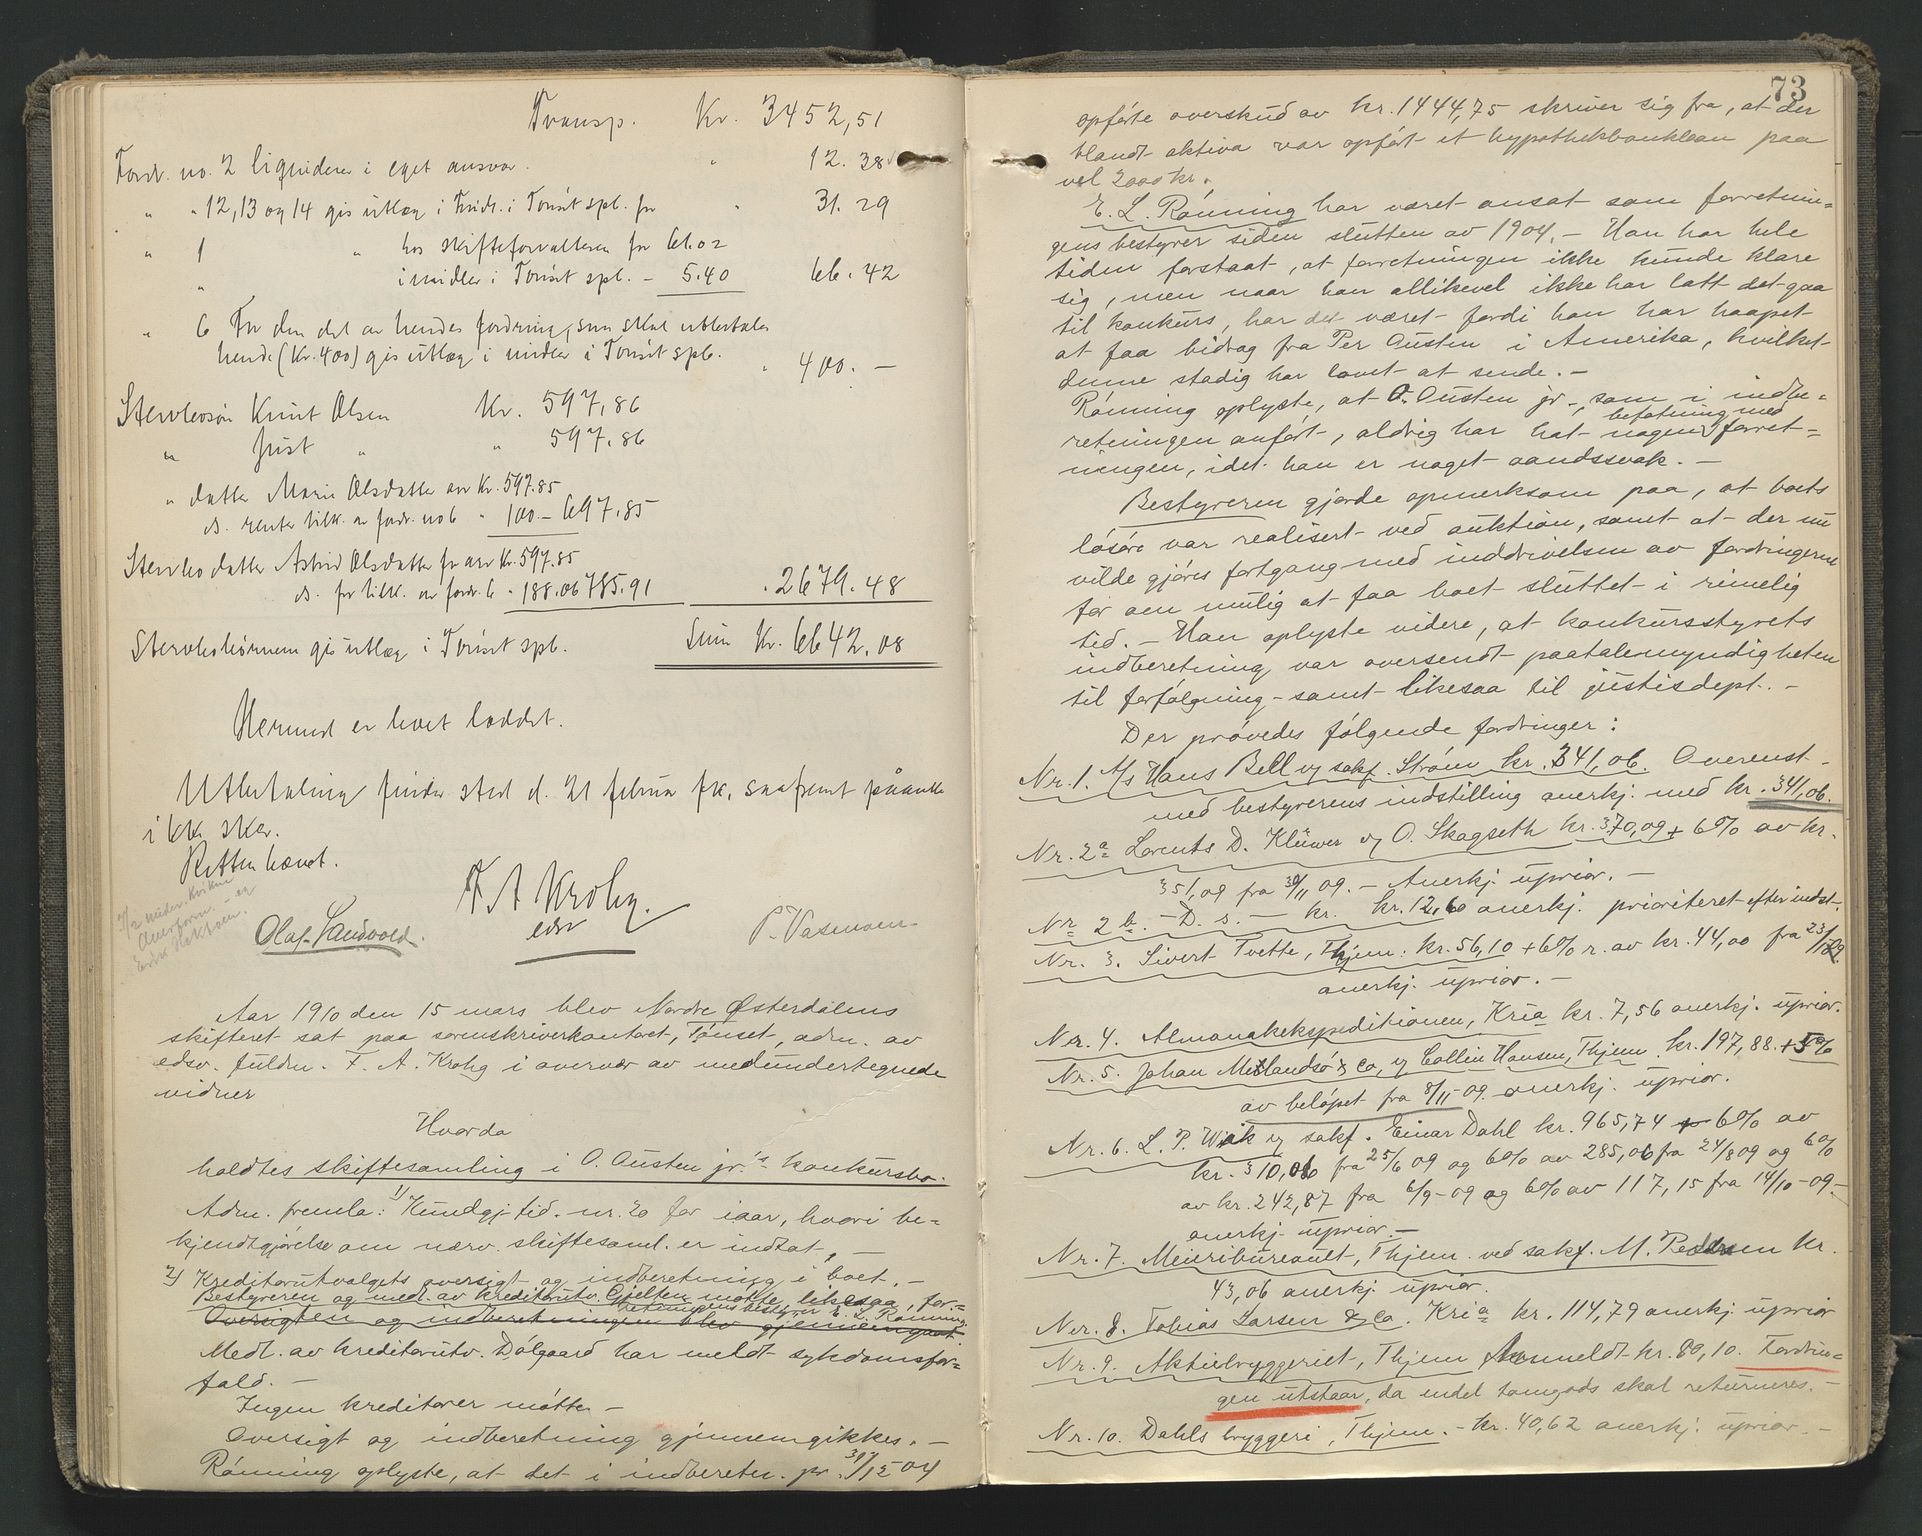 Transp. Kr. 3452,51
Fordr. no. 2 liquiderer i eget ansvar. " 12.38
" " 12, 13 og 14 gis utlæg i Fordr. i Tønset spb. for " 31.29
" 1 " hos skifteforvalteren for 61.02
" i midler i Tønset spb. - 5.40 66.42
" 6 For den del av hendes fordring, som skal utbetales
hende (Kr. 400) gis utlæg i midler i Tønset spb. " 400. -
Stervbosøn Knut Olsen Kr. 597,86
" Just " " 597.86
" datter Marie Olsdatter arv Kr. 597.85
ds. renter tilk. av fordr. no 6 " 100 - 697.85
Stervbodatter Astrid Olsdatter for arv Kr. 597.85
ds. for tilk. av fordr. 6 " 188.06 785.91 . 2679.48
Stervbobørnene gis utlæg i Tønset spb. Sum Kr. 6642,08
Hermed er boet sluttet.
Utbetaling finder sted d. 21 februar fk. saafremt påanke
ikke sker.
Retten hævet.
F A Krohg
edsv
Olaf Sandvold. P. Vasmoen
Aar 1910 den 15 mars blev Nordre Østerdalens
skifteret sat paa sorenskriverkontoret, Tønset, adm. av
edsv. fuldm. F. A. Krohg i overvær av medundertegnede
vidner
Hvorda
holdtes skiftesamling i O. Austen jr.'s konkursbo.
Adm. fremla: 1) Kundgj. tid. nr. 20 for iaar, hvori be=
kjendtgjørelse om nærv. skiftesaml. er indtat. -
2) Kreditorutvalgets oversigt og indberetning i boet. -
Bestyreren og medl. av kreditorutv. Gjelten møtte, likesaa, for=
retningens bestyrer E. L. Rønning.
Oversigten og indberetningen blev gjennemgaat
Medl. av kreditorutv. Dølgaard har meldt sykdomsfor=
fald. -
Ingen kreditorer møtte -
Oversigt og indberetning gjennemgikkes. -
Rønning oplyste, at det i indbereten. pr. 31/12 04
73
opførte overskud av kr. 1444,75 skriver sig fra, at der
blandt aktiva var opført et hypothekbanklaan paa
vel 2000 kr.
E. L. Rønning har været ansat som forretnin=
gens bestyrer siden slutten av 1904. - Han har hele
tiden forstaat, at forretningen ikke kunde klare
sig, men naar han allikevel ikke har latt det gaa
til konkurs, har det været fordi han har haapet
at faa bidrag fra Per Austen i Amerika, hvilket
denne stadig har lovet at sende. -
Rønning oplyste, at O. Austen jr., som i indbe=
befatning med
retningen anført, aldrig har hat nogen forret=
ningen, idet han er noget aandssvak. -
Bestyreren gjorde opmerksom paa, at boets
løsøre var realisert ved auktion, samt at der nu
vilde gjøres fortgang med inddrivelsen av fordringerne
for om mulig at faa boet sluttet i rimelig
tid. - Han oplyste videre, at konkursstyrets
indberetning var oversendt paatalemyndigheten
til forfølgning - samt likesaa til justisdept. -
Der prøvedes følgende fordringer:
Nr. 1. A/s Hans Bell v/ sakf. Strøm kr. 341,06. Overenst-
med bestyrerens indstilling anerkj. med kr. 341,06.
Nr. 2a Lorents D. Klüwer v/ O. Skagseth kr. 370,09 + 6% av kr.
351,09 fra 30/11 09. - Anerkj. uprior. -
Nr 2 b. - D. s. - kr. kr. 12,60 anerkj. prioriteret efter indst.
Nr. 3. Sivert Tvette, Thjem: kr. 56,10 + 6% r. av kr. 44,00 fra 23/12 09.
anerkj. uprior. -
Nr. 4. Almanakekspeditionen, Kria kr. 7,56 anerkj. uprior.
Nr. 5. Johan Mellandsø & Co, v/ Collin Hansen, Thjem kr. 197,88 + 5%
av beløpet fra 8/11 09. anerkj. uprior.
Nr. 6. L. P. Wiik v/ sakf. Einar Dahl kr. 965,74 + 6% av
kr. 310,06 fra 25/6 09 og 6% av 285,06 fra 24/8 09 og 6%
av kr. 242,87 fra 6/9-09 og 6% av 117,15 fra 14/10-09.-
anerkj. uprior. -
Nr. 7. Meieribureauet, Thjem ved sakf. M. Pedersen kr.
43,06 anerkj. uprior.
Nr. 8. Tobias Larsen & Co. Kria kr. 114,79 anerkj. uprior
Nr. 9. Aktiebryggeriet, Thjem Anmeldt kr. 80,10. Fordrin=
gen utstaar, da endel tomgods skal returneres. -
Nr. 10. Dahls bryggeri, Thjem. - kr. 40,62 anerkj. uprior. -